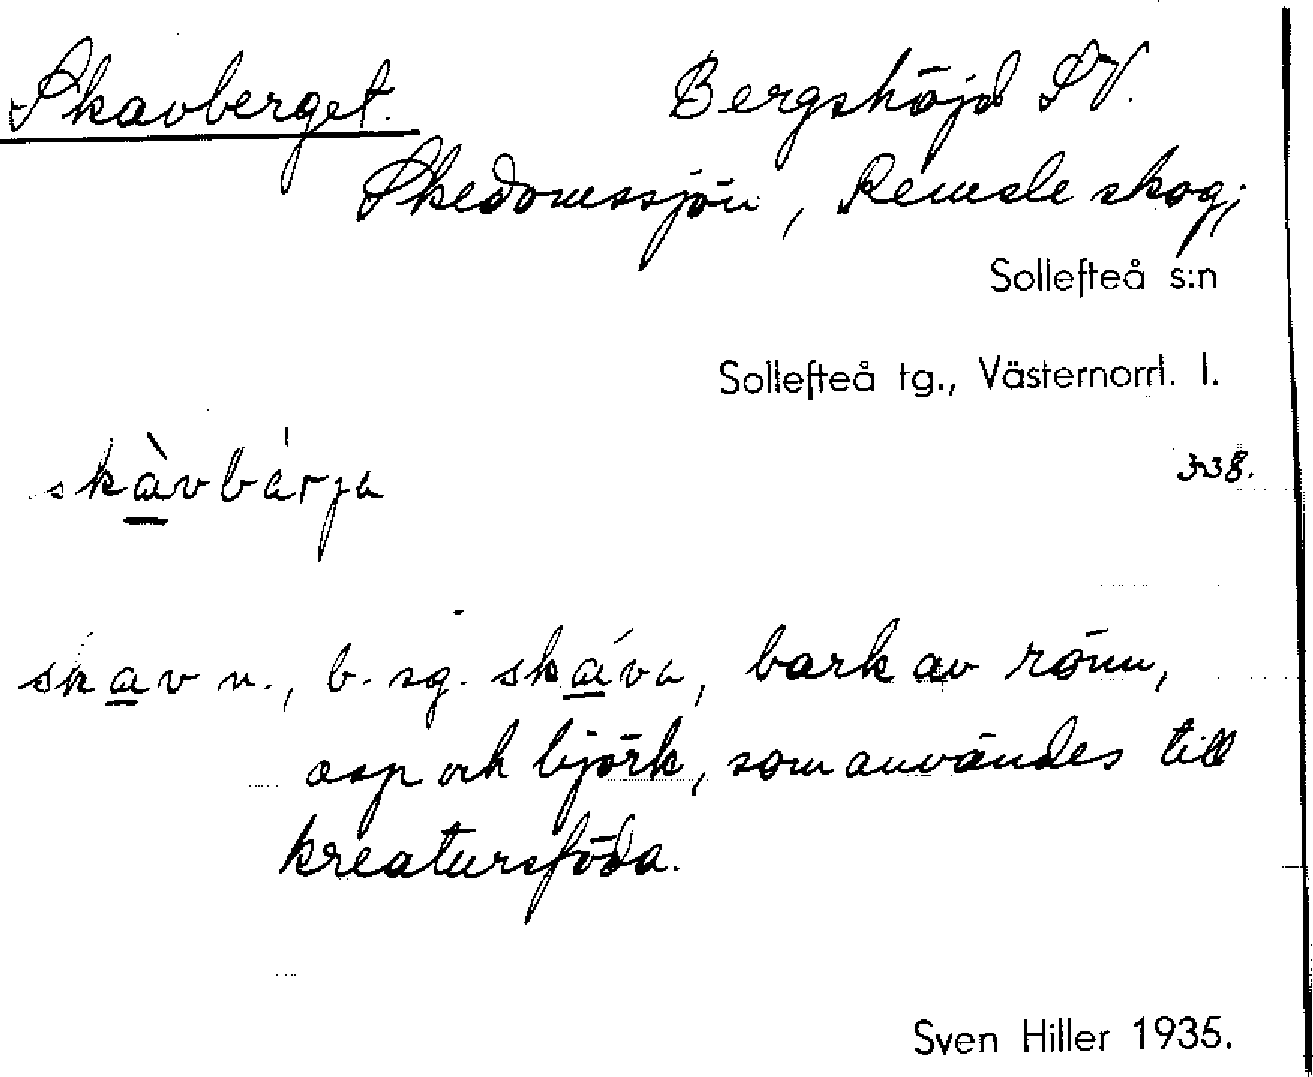 Skavberget. Bergshöjd SV.
Skedomssjön, Remsle skog;
Sollefteå s:n
Sollefteå tg., Västernorrl. l.
skàvbárja
338.
skav n., b. sg. skáva, bark av rönn,
asp och björk, som användes till
kreatursföda.
Sven Hiller 1935.